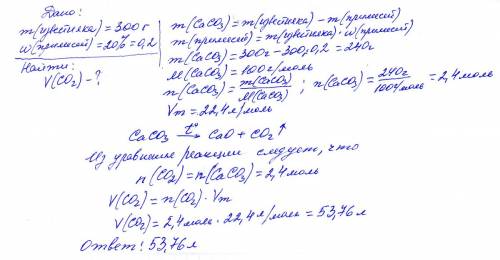 Дано:
m(известняка) = 300 г
w(примесей) = 20% = 0,2
Найти:
V(CO₂) - ?
m(CaCO₃) = m(известняка) - m(примесей)
m(примесей) = m(известняка) · w(примесей)
m(CaCO₃) = 300г - 300·0,2 = 240г
M(CaCO₃) = 100 г/моль
n(CaCO₃) = m(CaCO₃)/M(CaCO₃) ; n(CaCO₃) = 240г/100г/моль = 2,4 моль
Vm = 22,4 л/моль
CaCO₃ t°→ CaO + CO₂↑
Из уравнение реакции следует, что
n(CO₂) = n(CaCO₃) = 2,4 моль
V(CO₂) = n(CO₂) · Vm
V(CO₂) = 2,4 моль · 22,4 л/моль = 53,76 л
Ответ: 53,76 л